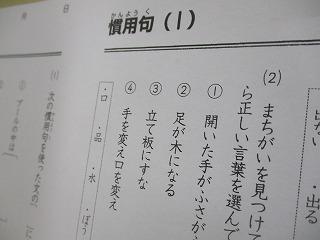 月 日
かんようく
慣用句(1)
出ない ・出る
(2) まちがいを見つけて
ら正しい言葉を選んで
① 開いた手がふさが
② 足が木になる
③ 立て板にすな
④ 手を変え口を変え
・口 ・品 ・水 ・ぼう
(1) 次の慣用句を使った文の
① プールの中は
②